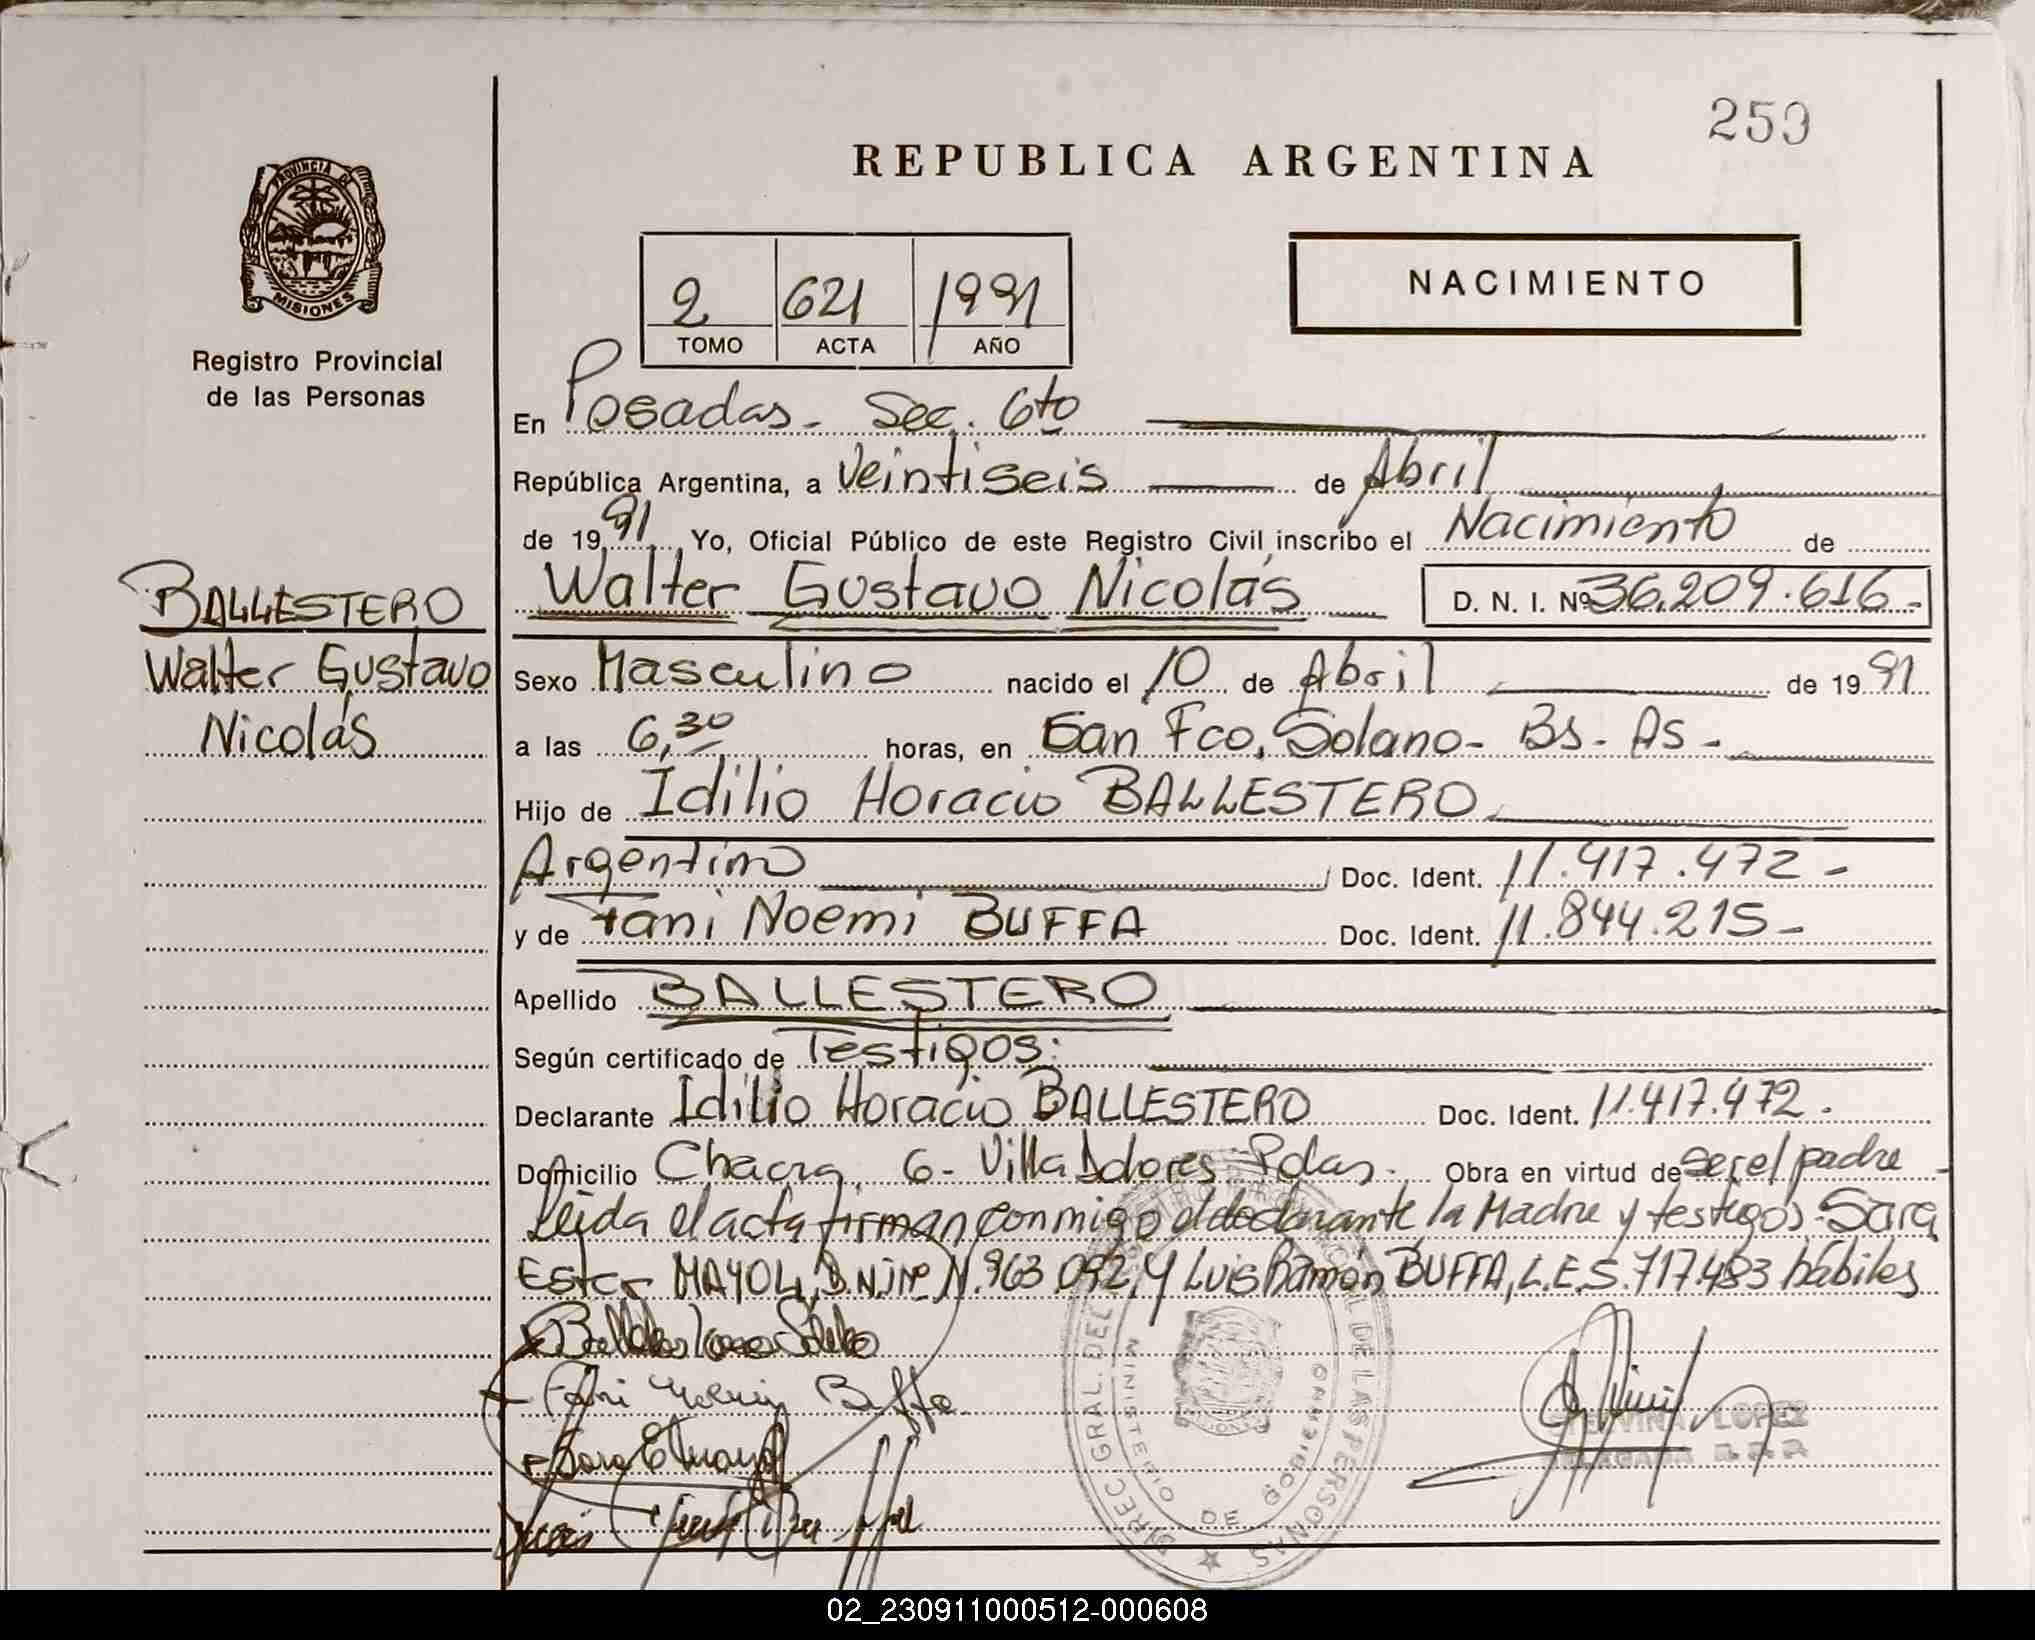 250
REPUBLICA ARGENTINA
PROVINCIA DE
MISIONES
Registro Provincial
de las Personas
2 621 1991
TOMO ACTA AÑO
NACIMIENTO
En Posadas - Sec. 6to
República Argentina, a Veintiseis de Abril
de 1991, Yo, Oficial Público de este Registro Civil, inscribo el Nacimiento de
Walter Gustavo Nicolás D. N. I. Nº 36.209.616-
BALLESTERO
Walter Gustavo
Nicolás
Sexo Masculino nacido el 10 de Abril de 1991
a las 6,30 horas, en San Fco. Solano - Bs - As -
Hijo de Idilio Horacio BALLESTERO
Argentino Doc. Ident. 11.417.472 -
y de Fani Noemi BUFFA Doc. Ident. 11.844.215 -
Apellido BALLESTERO
Según certificado de Testigos:
Declarante Idilio Horacio BALLESTERO Doc. Ident. 11.417.472.
Domicilio Chacra 6 - Villa Dolores Pdas. Obra en virtud de ser el padre
Leida el acta firman conmigo el declarante la Madre y testigos. Sara
Ester MAYOL, D.N.I Nº N. 963.092, Y Luis Ramón BUFFA, L.E. 5.717.483 hábiles
Fani Noemi Buffa
Sara E Mayol
DIREC. GRAL. DEL REGISTRO PROVINCIAL DE LAS PERSONAS
MINISTERIO DE GOBIERNO
LOPEZ
DELEGADA R.P.P.
02_230911000512-000608